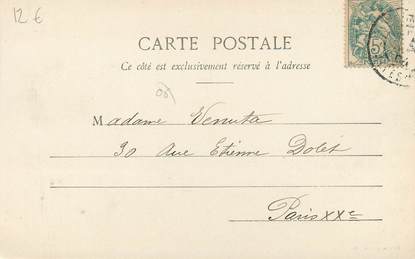 12 €
CARTE POSTALE
Ce côté est exclusivement réservé à l'adresse
5
Madame Venuta
30 Rue Etienne Dolet
Paris XXe